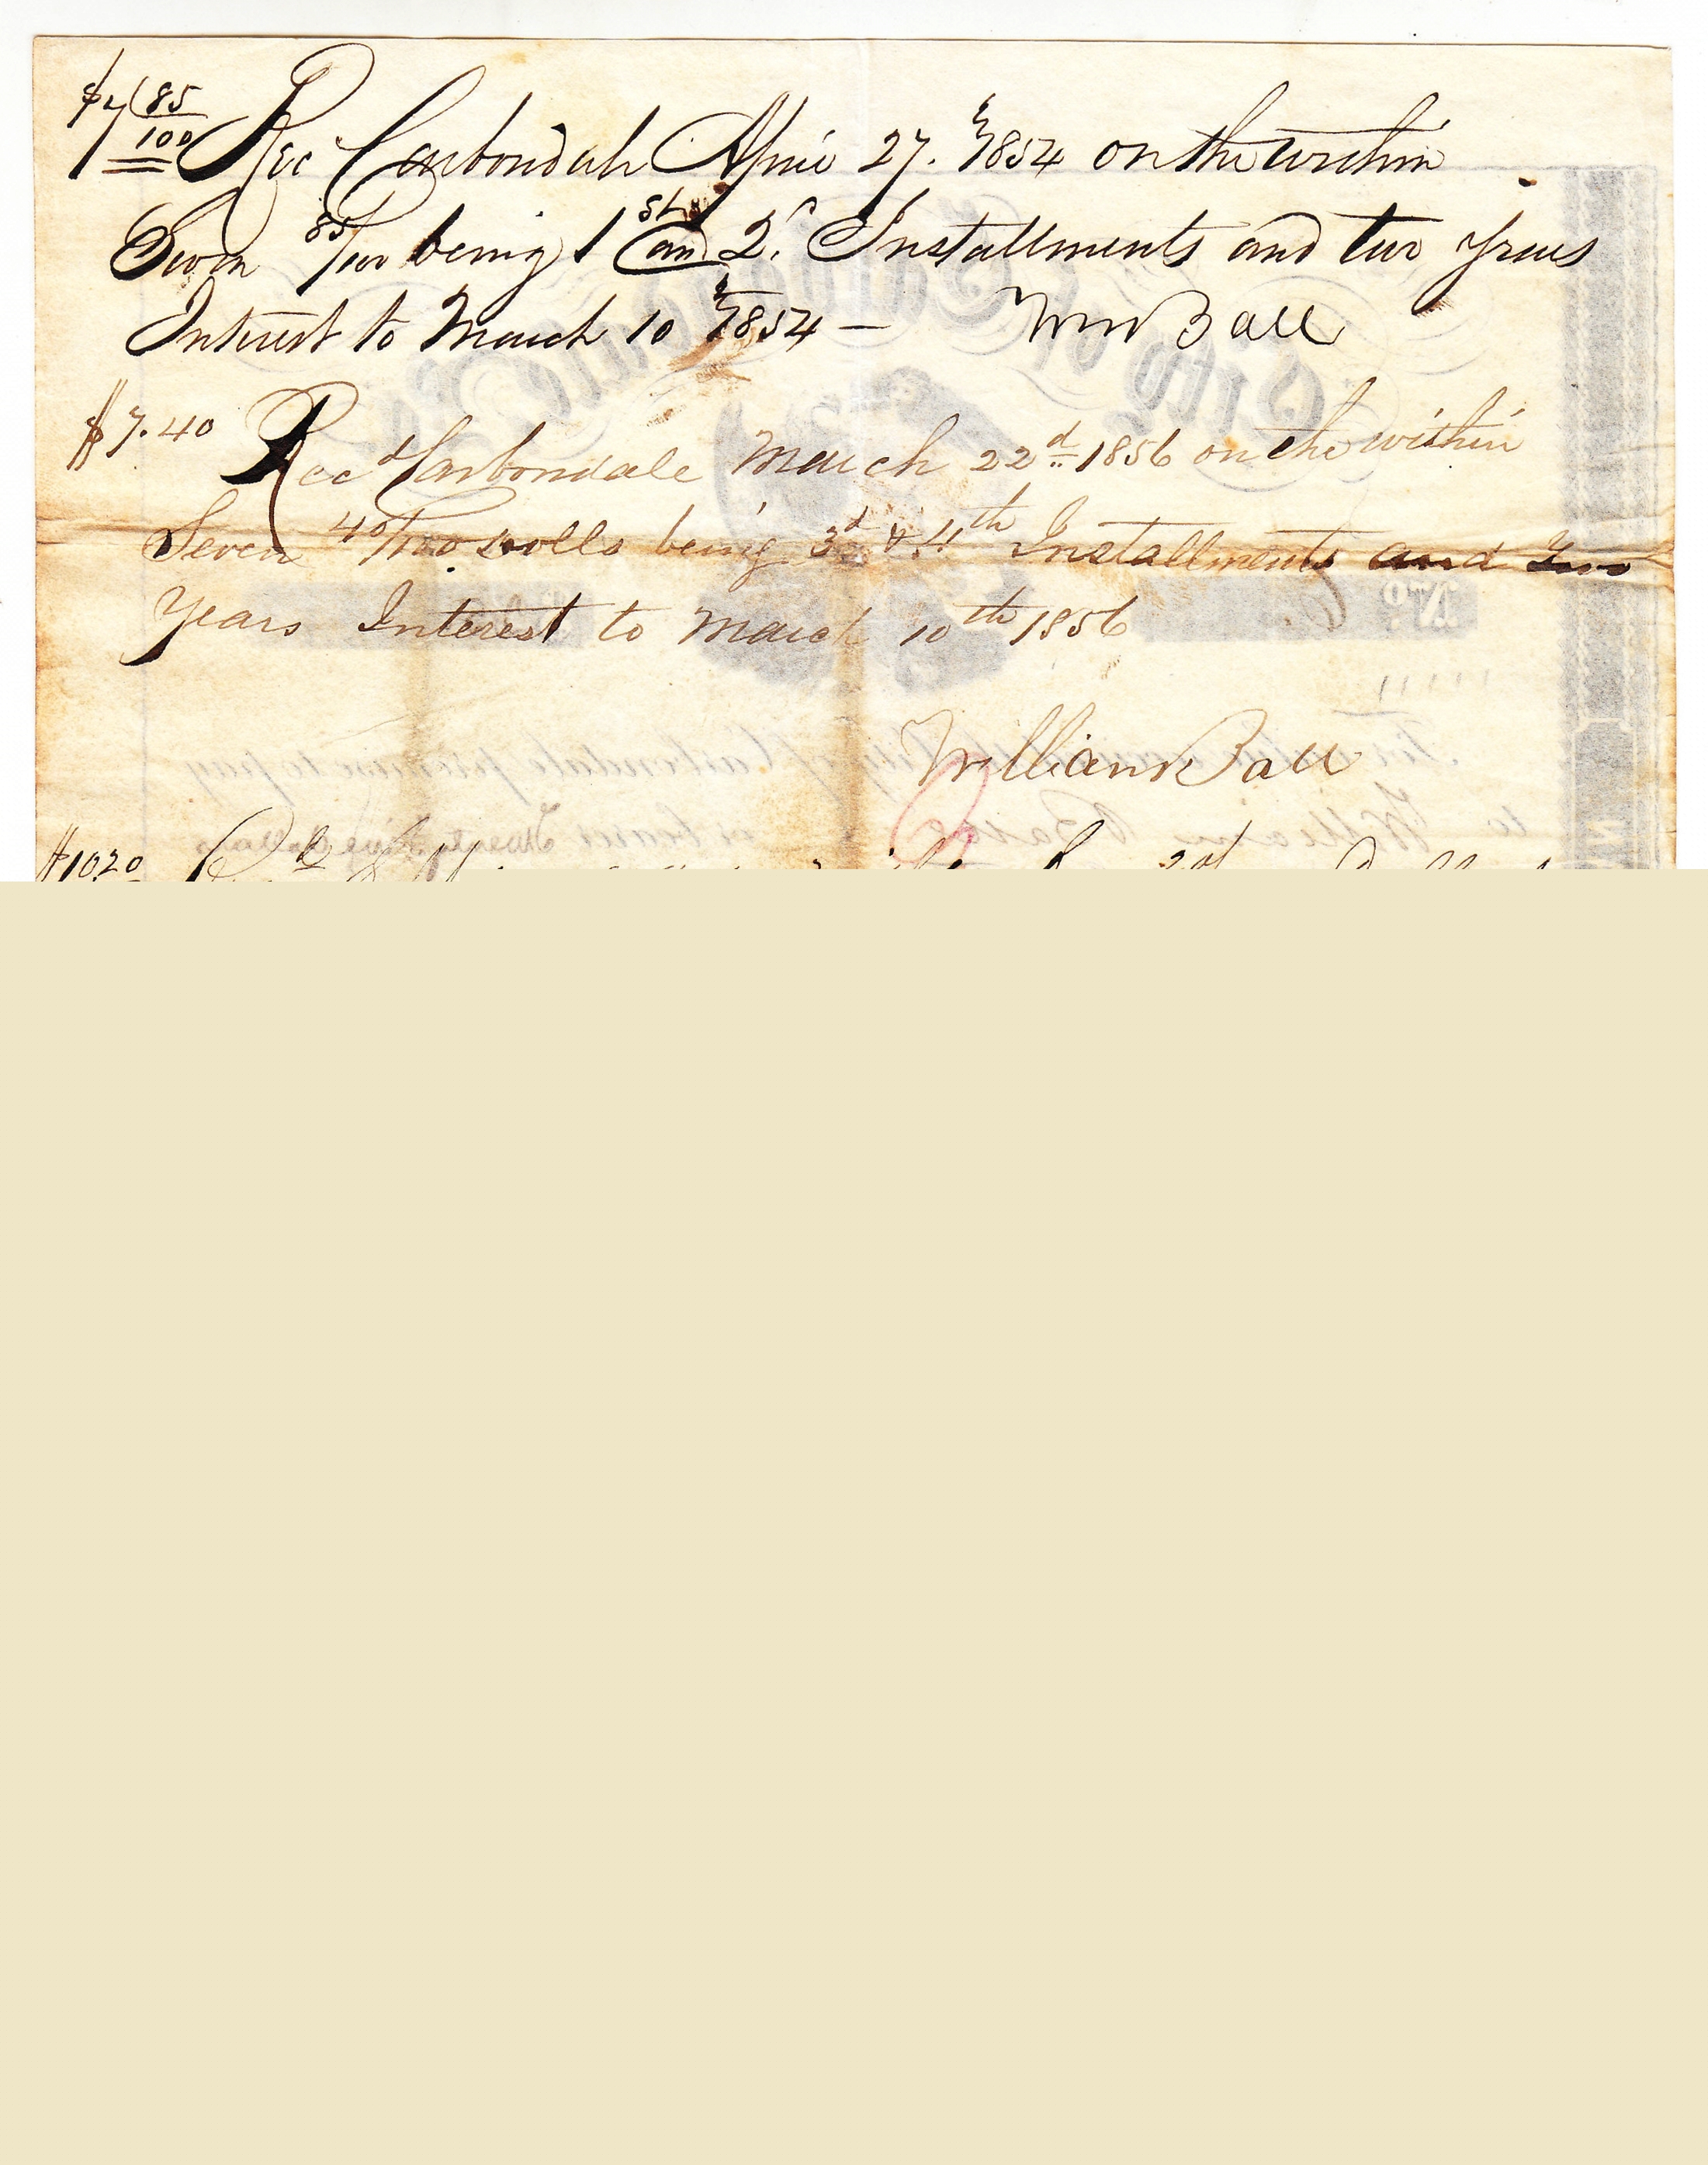 $7 85/100 Rec Carbondale April 27. 1854 on the within
Seven 85/100 being 1st and 2d Installments and two years
Interest to March 10 1854 — Wm Ball
$7.40 Recd Carbondale March 22d 1856 on the within
Seven 40/100 Dolls being 3d & 4th Installments and Two
Years Interest to March 10th 1856
William Ball
$10.20